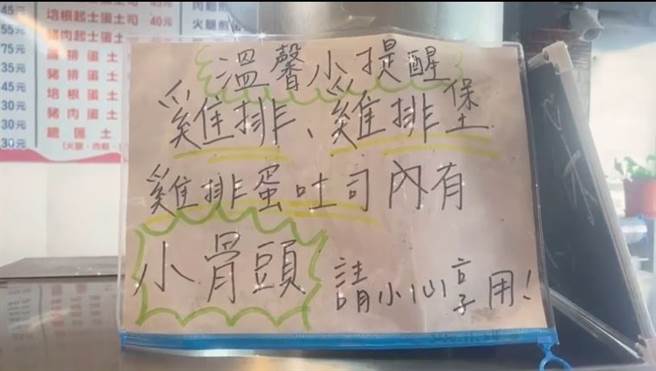 45元
50元
65元
55元
75元
35元
45元
30元
30元
培根起士蛋土司 40元
豬肉起士蛋土司 45元
雞排蛋土
豬排蛋土
培根蛋土
豬肉蛋土
火腿
溫馨小提醒
雞排、雞排堡
雞排蛋吐司內有
小骨頭 請小心享用!